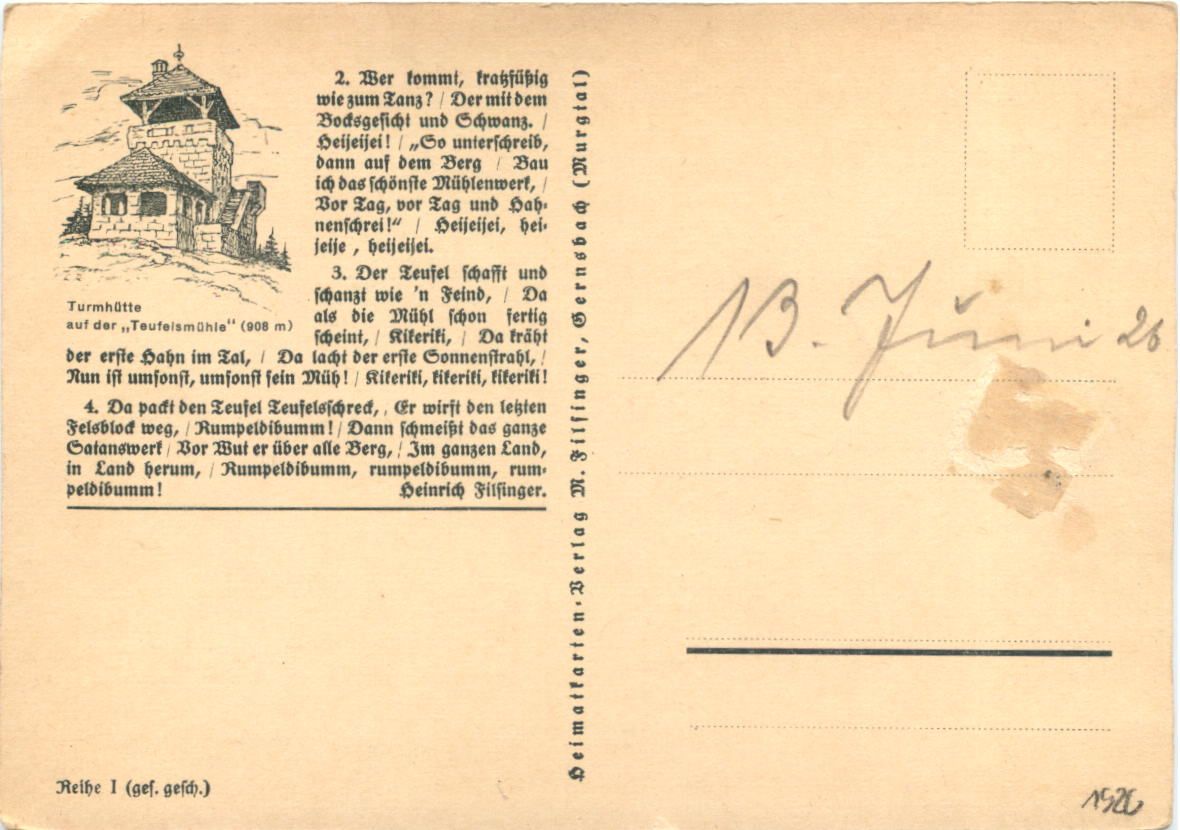 2. Wer kommt, kratzfüßig
wie zum Tanz? / Der mit dem
Bocksgesicht und Schwanz. /
Heijeijei! / „So unterschreib,
dann auf dem Berg / Bau
ich das schönste Mühlenwerk, /
Vor Tag, vor Tag und Hah-
nenschrei!“ / Heijeijei, hei-
jeije , heijeijei.
3. Der Teufel schafft und
schanzt wie 'n Feind, / Da
als die Mühl schon fertig
scheint, / Kikeriki, / Da kräht
der erste Hahn im Tal, / Da lacht der erste Sonnenstrahl, /
Nun ist umsonst, umsonst sein Müh! / Kikeriki, kikeriki, kikeriki!
4. Da packt den Teufel Teufelsschreck, / Er wirft den letzten
Felsblock weg, / Rumpeldibumm! / Dann schmeißt das ganze
Satanswerk / Vor Wut er über alle Berg, / Im ganzen Land,
in Land herum, / Rumpeldibumm, rumpeldibumm, rum-
peldibumm! Heinrich Filsinger.
Turmhütte
auf der „Teufelsmühle“ (908 m)
Reihe I (ges. gesch.)
Heimatkarten-Verlag M. Filsinger, Gernsbach (Murgtal)
13. Juni 26
1926